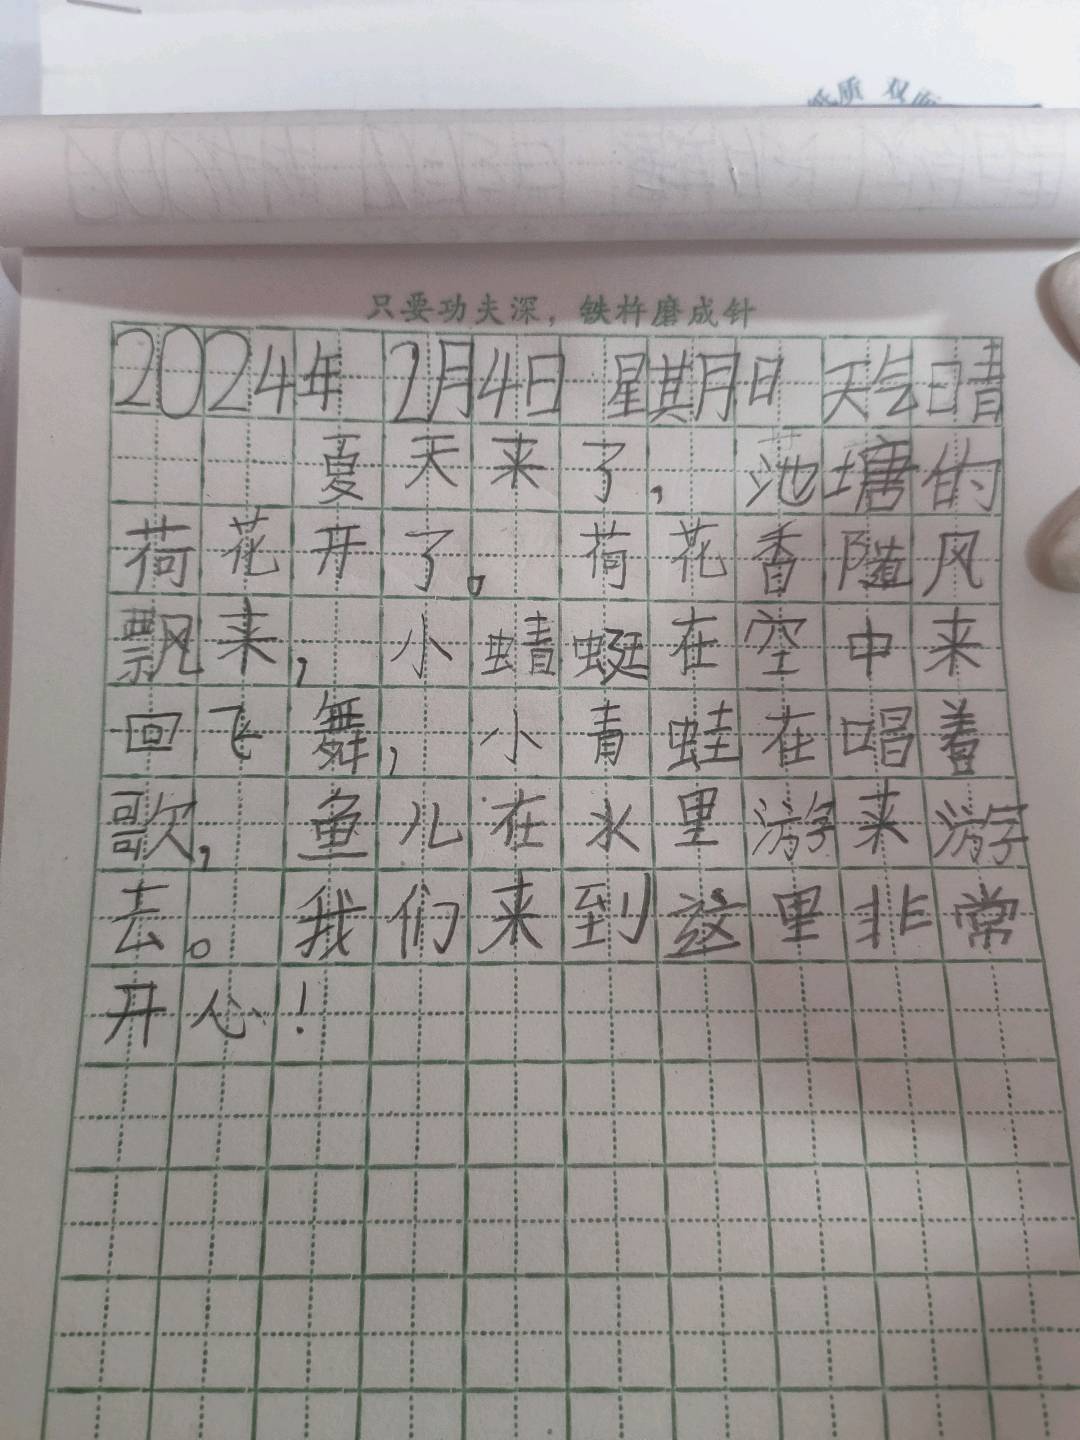 纸质 双面
只要功夫深，铁杵磨成针
2024年 2月4日 星期日 天气晴
夏天来了，池塘的
荷花开了。荷花香随风
飘来，小蜻蜓在空中来
回飞舞，小青蛙在唱着
歌，鱼儿在水里游来游
去。我们来到这里非常
开心！